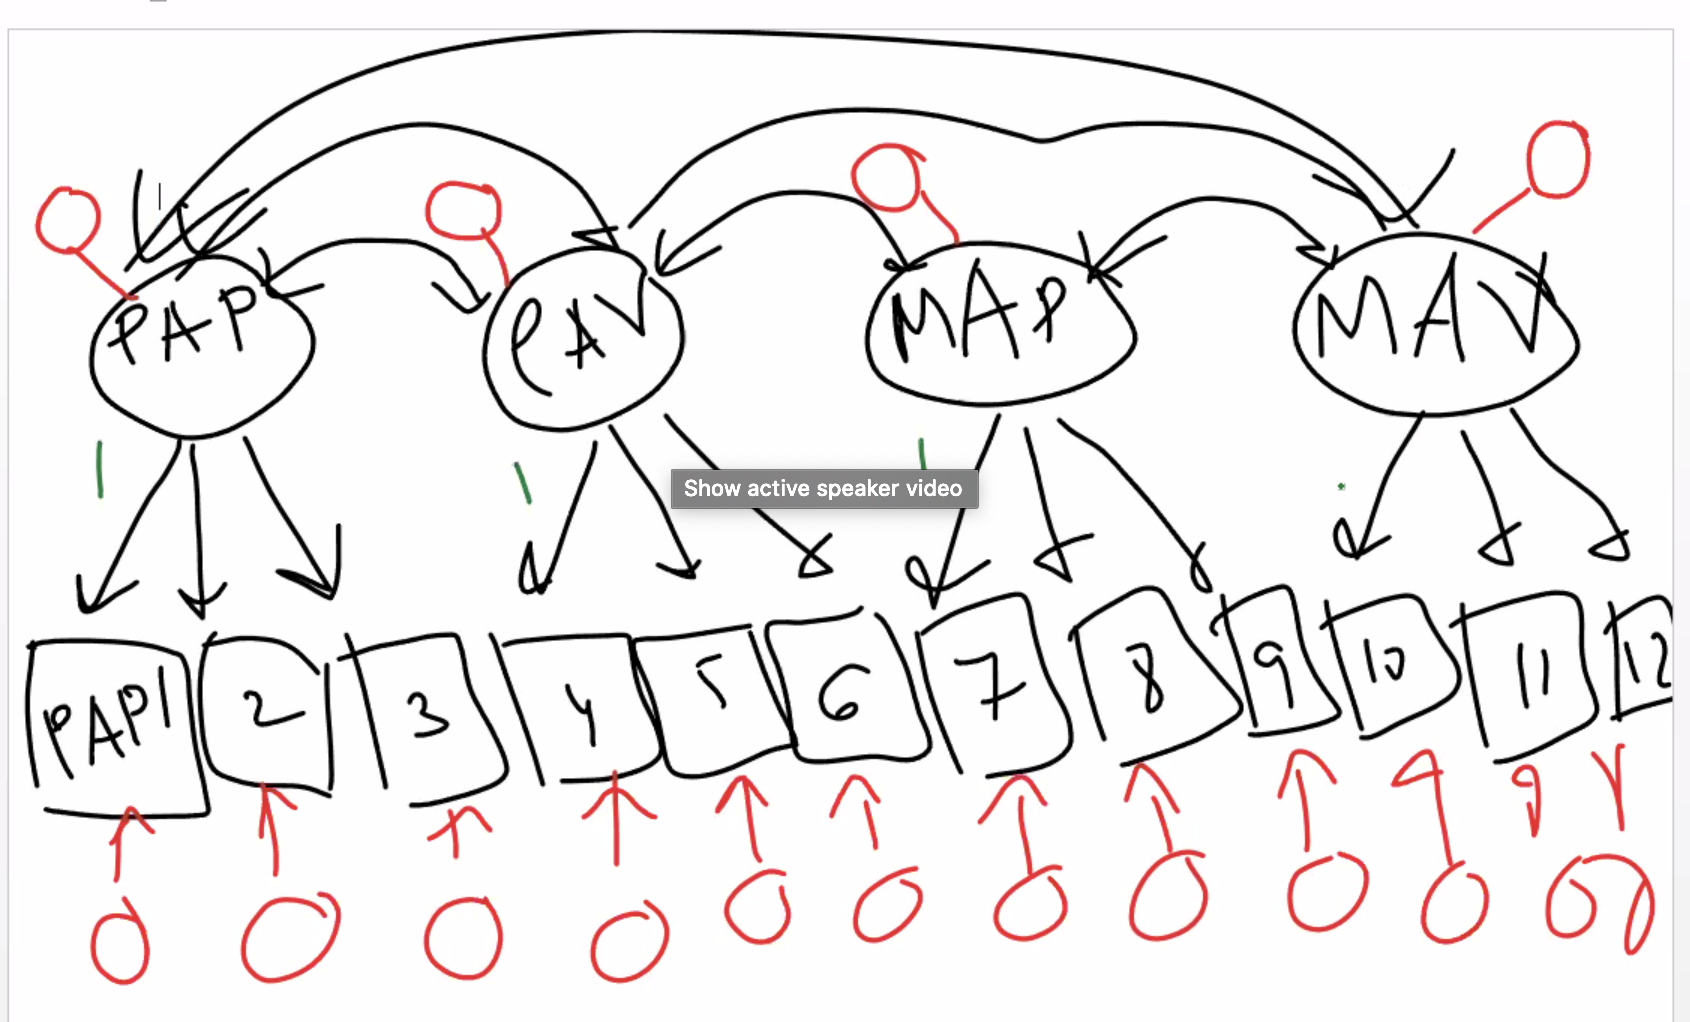 PAP PAV MAP MAV
Show active speaker video
PAP1 2 3 4 5 6 7 8 9 10 11 12